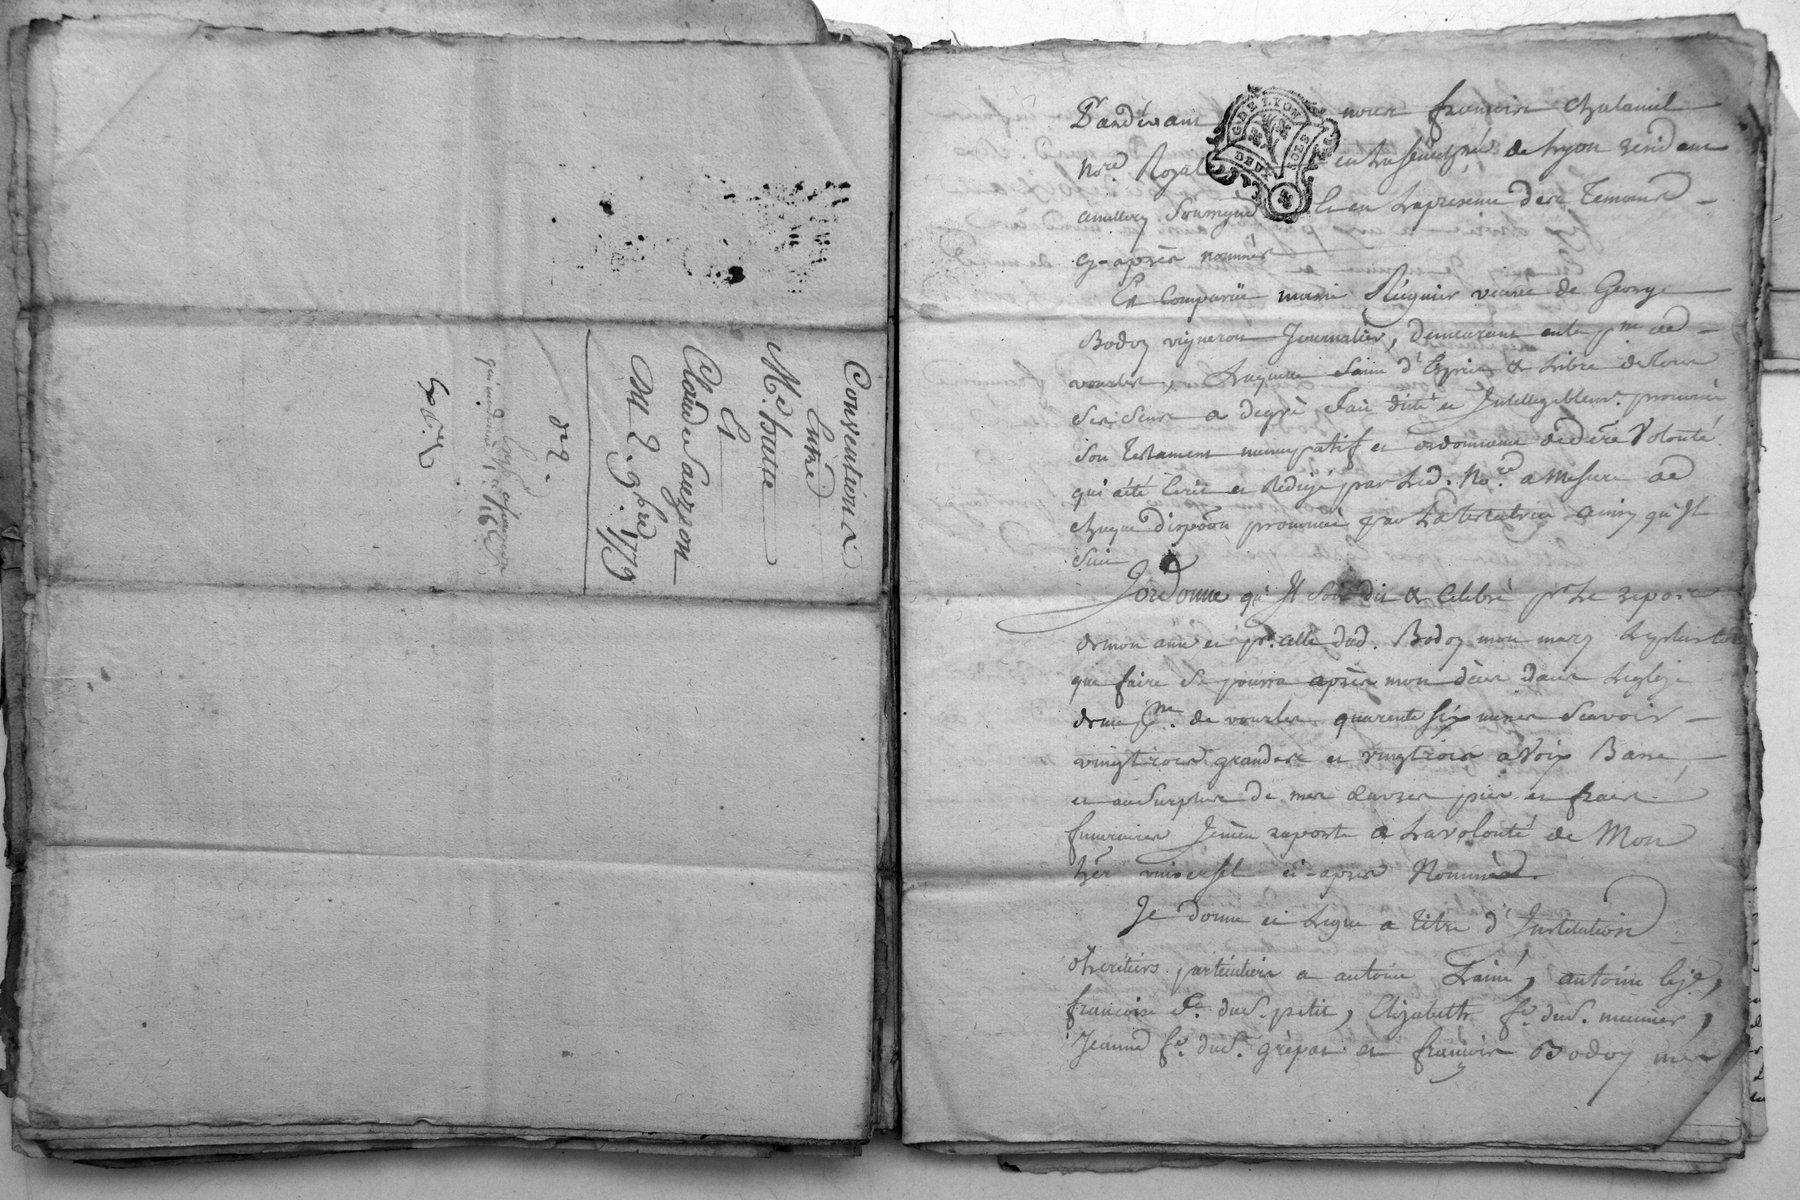 Conventions
Entre
Me hutte
Et
Claude Sauzeon
Du 2. 9bre. 1779
Pardevant nous françois Chataniel
Nore. Royal en La senechée de Lyon residant
amillery soussigné Et en La presence des Temoins
cy-après nommés
Est Comparüe marie Réguier veuve de George
Bodoy vigneron Journalier, demeurant en la pssе de
vourles, Laquelle saine d'Esprit & Libre de tous
ses sens a de gré fait dicté et Intelligiblemt. prononcé
son Testament nuncupatif et ordonnance de dere Volonté
qui a été Ecrit et Rédigé par Led. Nore. a Mesure de
chaque dispoon prononcée par La testatrice ainsy qu'Il
suit
J'ordonne qu'Il soit dit & Celebré pr Le repos
de mon ame et pr. celle dud. Bodoy mon mary Le plustot
que faire se pourra après mon décés dans L'eglize
de vourles quarente six messes Scavoir
vingt trois grandes et vingtrois a Voix Basse,
et au Surplus de mes œuvres pies et frais
funeraires Je m'en raporte a La volonté de Mon
her. universel ci-après Nommé.
Je donne et Legue a titre d'Institution
d'heritiers particuliers a antoine L'ainé, antoine Le je.,
françoise fe. du S. petit, Elizabeth fe. du S. meunier,
Jeanne fe. du S. grépat et françois Bodoy mes
G. DE LYON
DEUX SOLS